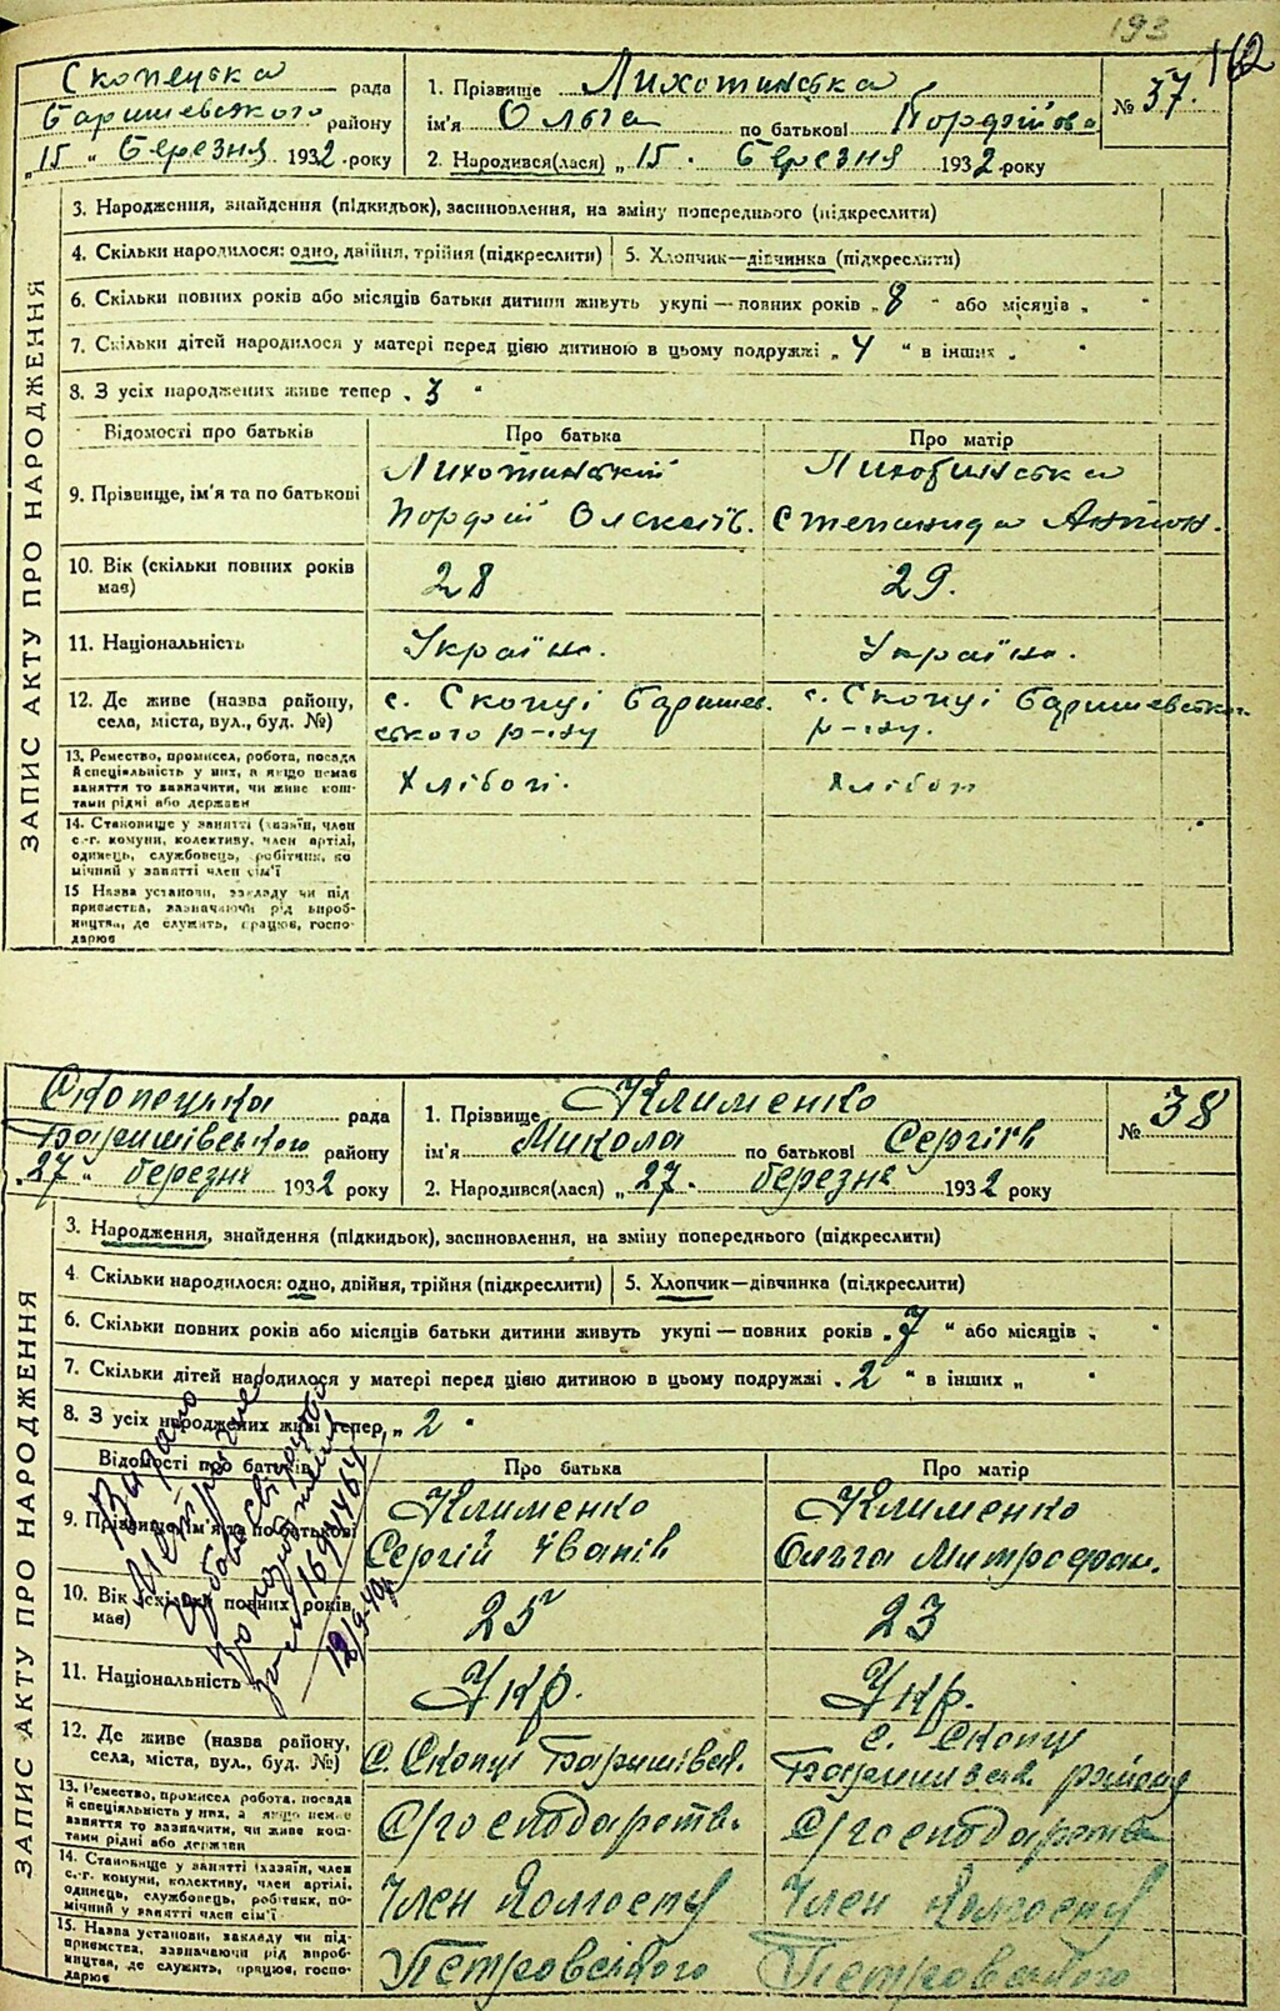 193
162
Скопецька рада
Баришевського району
„15" Березня 1932 року
1. Прізвище Лихотинська
ім'я Ольга по батькові Порфірова
2. Народився(лася) „15. Березня 1932 року
№ 37.
ЗАПИС АКТУ ПРО НАРОДЖЕННЯ
3. Народження, знайдення (підкидьок), засиновлення, на зміну попереднього (підкреслити)
4. Скільки народилося: одно, двійня, трійня (підкреслити) 5. Хлопчик—дівчинка (підкреслити)
6. Скільки повних років або місяців батьки дитини живуть укупі — повних років „8" або місяців „ "
7. Скільки дітей народилося у матері перед цією дитиною в цьому подружжі „4" в інших „ "
8. З усіх народжених живе тепер „3"
Відомості про батьків Про батька Про матір
9. Прізвище, ім'я та по батькові
Лихотинський
Порфрій Олексіїв.
Лихотинська
Степанида Антон.
10. Вік (скільки повних років має) 28 29.
11. Національність Україн. Україн.
12. Де живе (назва району, села, міста, вул., буд. №)
с. Скопці Баришев.
ського р-ну
с. Скопці Баришевськог.
р-ну.
13. Ремество, промисел, робота, посада
й спеціяльність у них, а якщо немає
заняття то зазначити, чи живе кош-
тами рідні або держави
Хлібоі. Хлібоп
14. Становище у занятті (хазяїн, член
с.-г. комуни, колективу, член артілі,
одинець, службовець, робітник, по
мічний у занятті член сім'ї
15 Назва установи, закладу чи під
приємства, зазначаючи рід вироб-
ництва, де служить, працює, госпо-
дарює
Скопецька рада
Баришівського району
„27" березня 1932 року
1. Прізвище Клименко
ім'я Микола по батькові Сергіїв
2. Народився(лася) „27. березня 1932 року
№ 38
ЗАПИС АКТУ ПРО НАРОДЖЕННЯ
3. Народження, знайдення (підкидьок), засиновлення, на зміну попереднього (підкреслити)
4. Скільки народилося: одно, двійня, трійня (підкреслити) 5. Хлопчик—дівчинка (підкреслити)
6. Скільки повних років або місяців батьки дитини живуть укупі — повних років „7" або місяців „ "
7. Скільки дітей народилося у матері перед цією дитиною в цьому подружжі „2" в інших „ "
8. З усіх народжених живі тепер „2"
Відомості про батьків Про батька Про матір
9. Прізвище, ім'я та по батькові
Клименко
Сергій Іванів
Клименко
Ольга Митрофан.
10. Вік (скільки повних років має) 25 23
11. Національність Укр. Укр.
12. Де живе (назва району, села, міста, вул., буд. №)
с. Скопці Баришівск.
с. Скопці
Баришивск. району
13. Ремество, промисел робота, посада
й спеціяльність у них, а якщо немає
заняття то зазначити, чи живе кош-
тами рідні або держави
С/господарств. С/господарств
14. Становище у занятті (хазяїн, член
с.-г. комуни, колективу, член артілі,
одинець, службовець, робітник, по-
мічний у занятті член сім'ї
Член колгоспу Член колгоспу
15. Назва установи, закладу чи під-
приємства, зазначаючи рід вироб-
ництва, де служить, працює, госпо-
дарює
Петровського Петровського
Видано